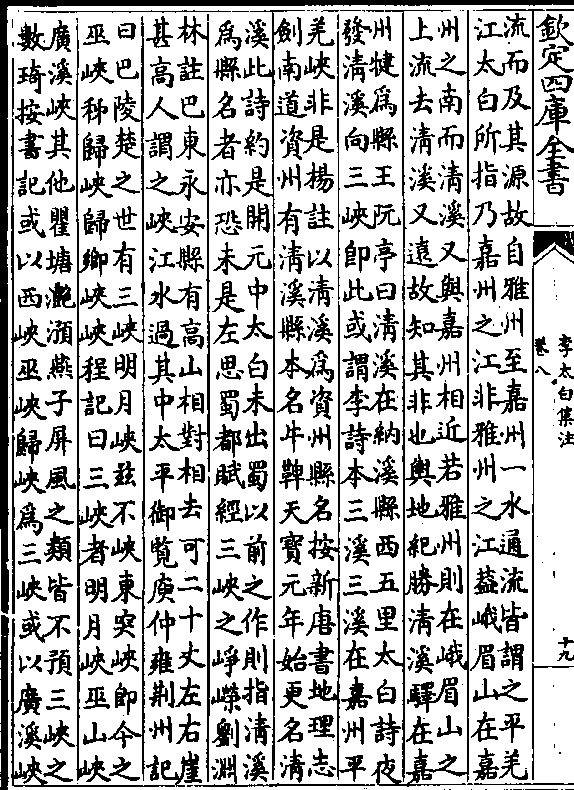 欽定四庫全書
李太白集注
卷八
十九
流而及其源故自雅州至嘉州一水通流皆謂之平羌
江太白所指乃嘉州之江非雅州之江蓋峨眉山在嘉
州之南而清溪又與嘉州相近若雅州則在峨眉山之
上流去清溪又遠故知其非也輿地紀勝清溪驛在嘉
州犍為縣王阮亭曰清溪在納溪縣西五里太白詩夜
發清溪向三峽即此或謂李詩本三溪三溪在嘉州平
羌峽非是楊註以清溪為資州縣名按新唐書地理志
劍南道資州有清溪縣本名牛鞞天寶元年始更名清
溪此詩約是開元中太白未出蜀以前之作則指清溪
為縣名者亦恐未是左思蜀都賦經三峽之崢嶸劉淵
林註巴東永安縣有高山相對相去可二十丈左右崖
甚高人謂之峽江水過其中太平御覽庾仲雍荆州記
曰巴陵楚之世有三峽明月峽兹不峽東突峽即今之
巫峽秭歸峽歸鄉峽峽程記曰三峽者明月峽巫山峽
廣溪峽其他瞿塘灔澦燕子屏風之類皆不預三峽之
數琦按書記或以西峽巫峽歸峽為三峽或以廣溪峽